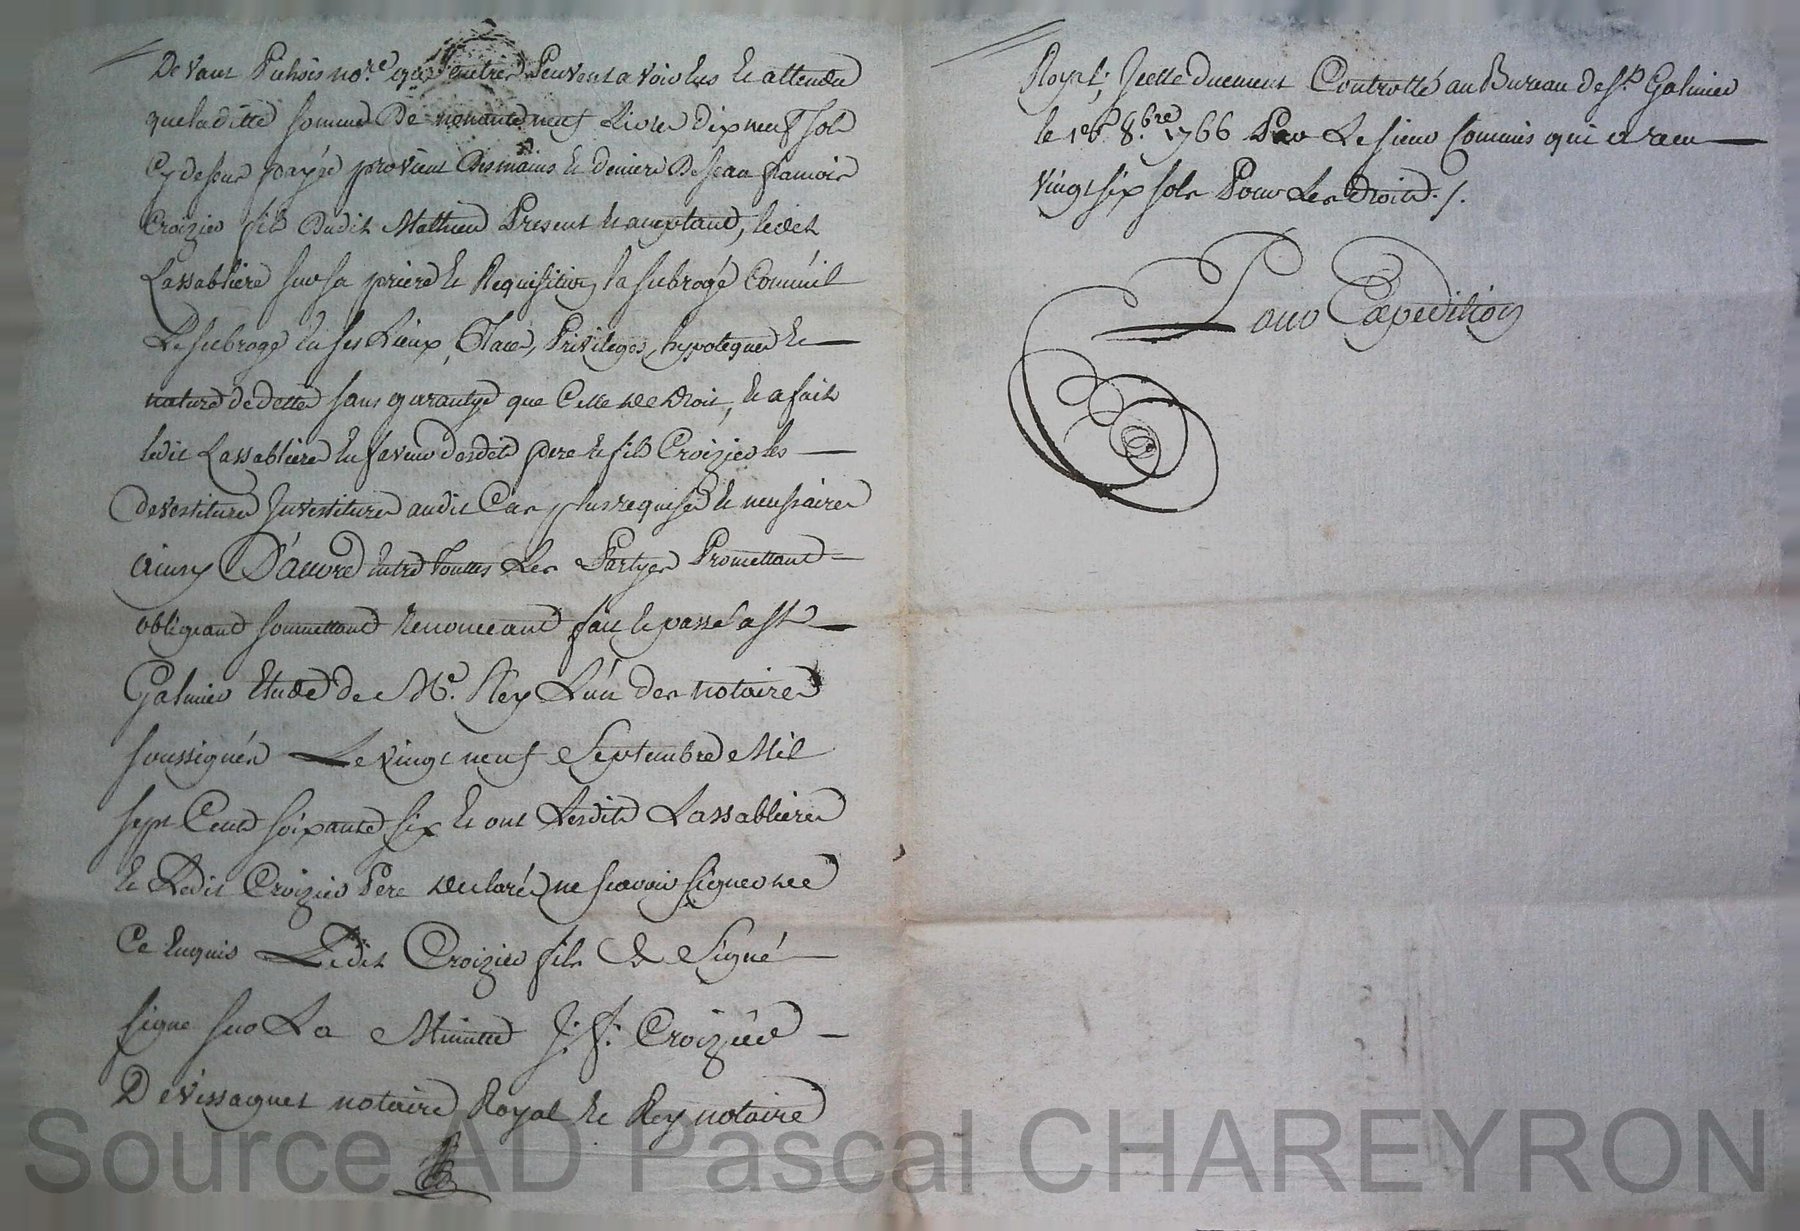 Devant Puhois no.re que autres Peuvent avoir lus Et attendu
que la ditte somme De nonante neuf Livres dix neuf sols
Cy dessus payée provient Des mains Et deniers De Jean francois
Croizier fils Dudit Mathieu Present Et acceptant, ledit
Lassabliere sur sa priere Et Requisition, la subrogé Comm'il
Le subroge En ses Lieux, Place, Privileges, hypoteques Et
nature de dette sans garantye que Celle de Droit, Et a fait
ledit Lassabliere En faveur desdits pere Et fils Croizier les
devestitures Investitures audit Cas plus requises Et necessaires
ainsy D'accord Entre touttes Les Partyes Promettant
obligeant soumettant Renonceant fait Et passé a St
Galmier Etude de Me. Rey L'un des notaires
soussignés Le vingt neuf Septembre Mil
sept Cent soixante six Et ont Lesdits Lassabliere
Et Ledit Croizier Pere declarés ne scavoir signer de
Ce Enquis Ledit Croizier fils a Signé
signé sur La Minutte J. f. Croizier
Devissaguet notaire Royal Et Rey notaire
Royal; Icelle duement Controllé au Bureau de St. Galmier
le 1er. 8.bre 1766 Par Le sieur Commis qui a receu
vingt six sols Pour Les droits ./.
Pour Expedition
Source AD Pascal CHAREYRON